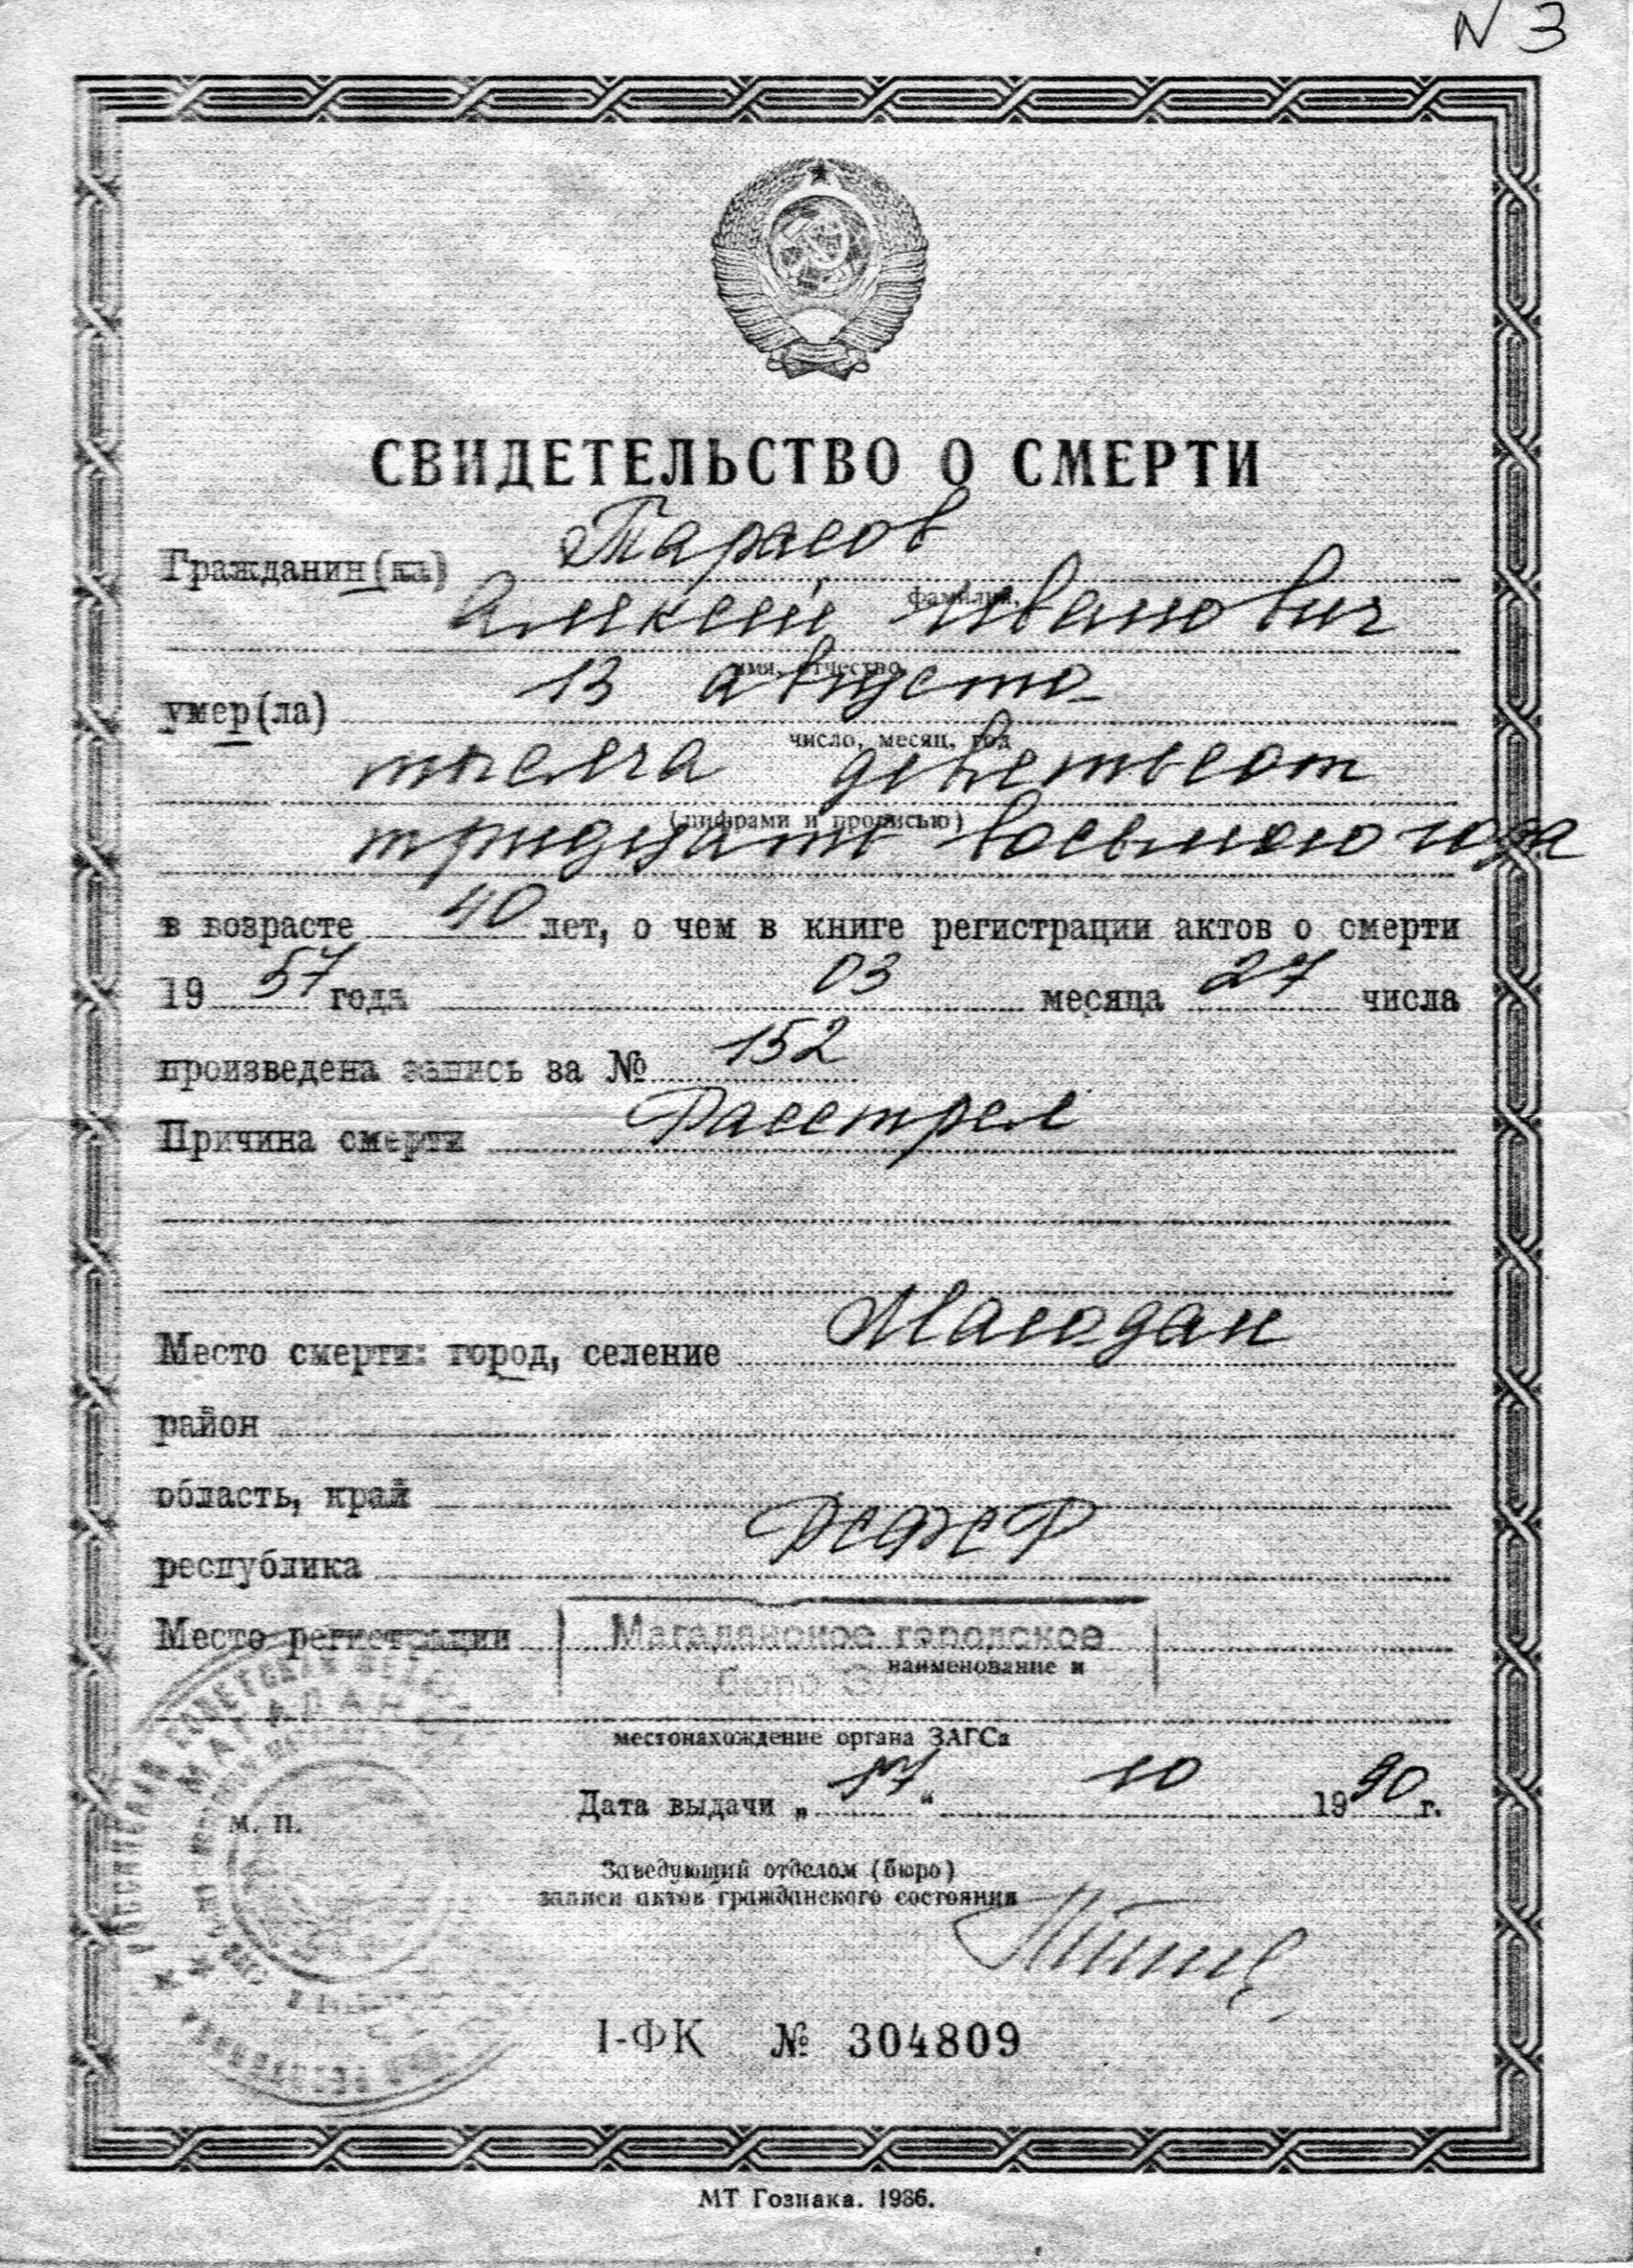 N 3
СВИДЕТЕЛЬСТВО О СМЕРТИ
Гражданин(ка) Тарасов
фамилия,
Алексей Иванович
имя, отчество
умер(ла) 13 августа
число, месяц, год
тысяча девятьсот
(цифрами и прописью)
тридцать восьмого года
в возрасте 40 лет, о чем в книге регистрации актов о смерти
1957 года 03 месяца 27 числа
произведена запись за № 152
Причина смерти Расстрел
Место смерти: город, селение Магадан
район
область, край
республика РСФСР
Место регистрации Магаданское городское
наименование и
бюро
местонахождение органа ЗАГСа
Дата выдачи „17“ 10 1990 г.
М. П.
Заведующий отделом (бюро)
записи актов гражданского состояния
I-ФК № 304809
МТ Гознака. 1986.